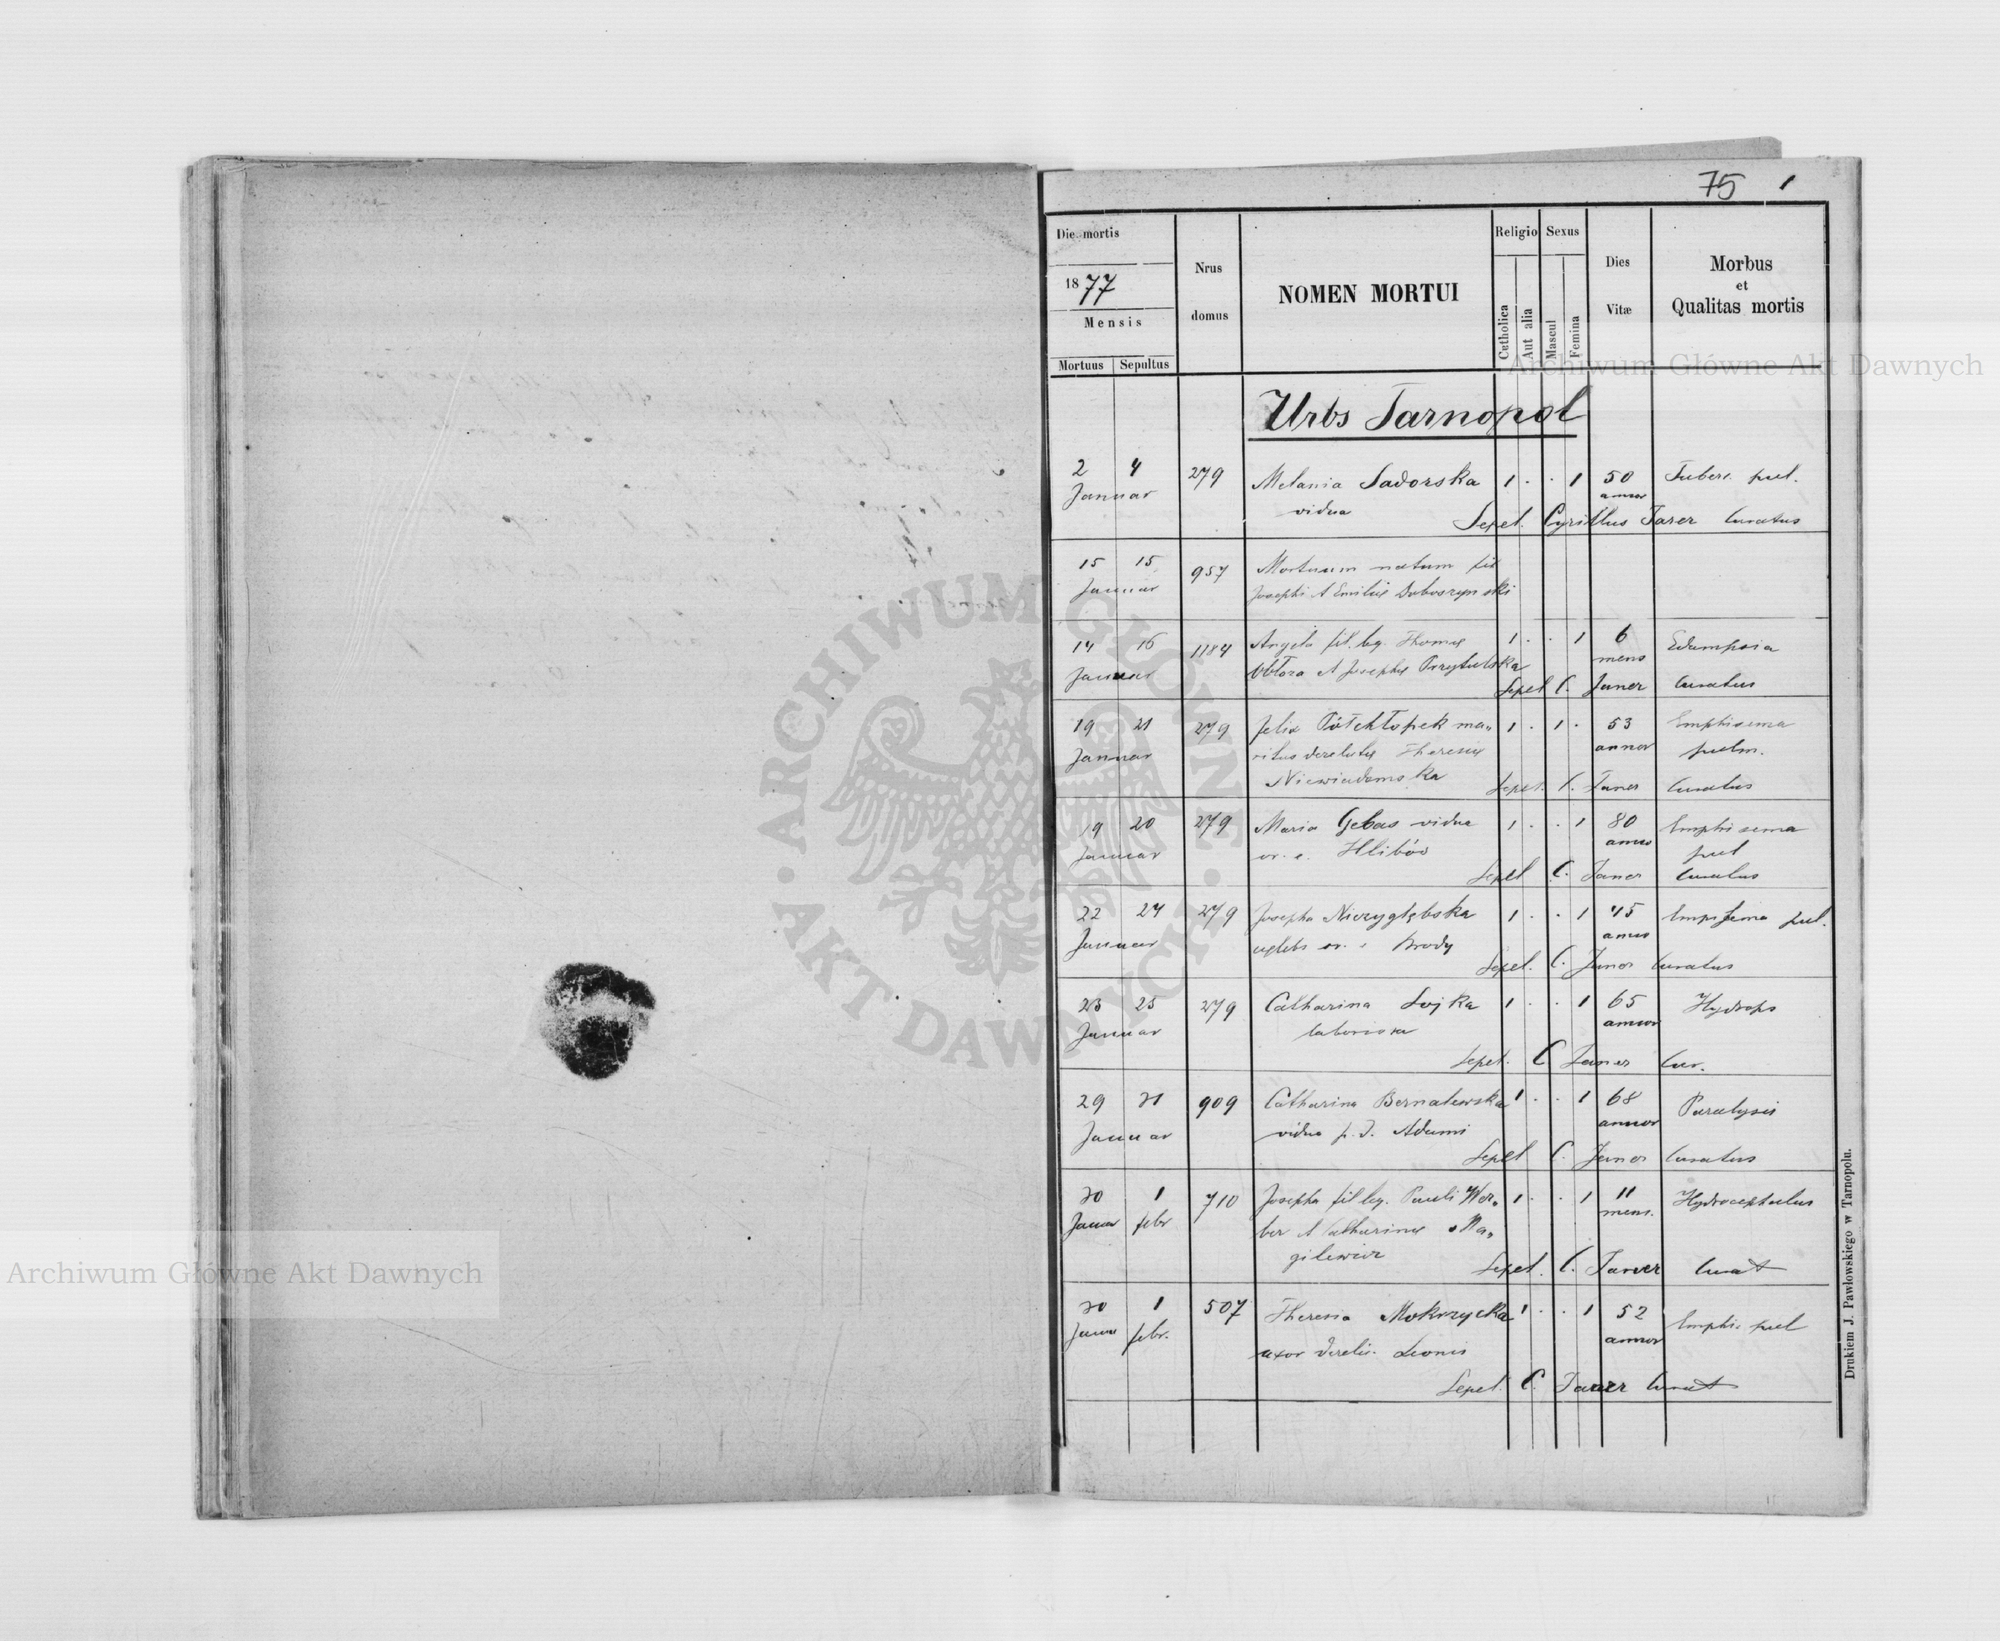 75 1
Die mortis
1877
Mensis
Mortuus Sepultus
Nrus domus
NOMEN MORTUI
Religio
Catholica
Aut alia
Sexus
Mascul
Femina
Dies Vitæ
Morbus
et
Qualitas mortis
Urbs Tarnopol
2 4 279 Melania Sadorska 1 · · 1 50 Tuberc. pul.
Januar vidua annor
Sepel. Cyrillus Janer Curatus
15 15 957 Mortuum natum fil
Januar Josephi & Emiliæ Doboszynski
14 16 1184 Angela fil. leg. Thomæ 1 · · 1 6 Eclampsia
Januar & Josephæ Przytulska mens
Sepel C. Janer Curatus
19 21 279 Felix Półchłopek ma„ 1 · 1 · 53 Emphisema
Januar ritus derelictæ Theresiæ annor pulm.
Niewiadomska
Sepel. C. Janer Curatus
19 20 279 Maria Gebas vidua 1 · · 1 80 Emphisema
Januar or. e. Hlibów annor pul
Sepel C. Janer Curatus
22 24 279 Josepha Niezyglębska 1 · · 1 45 pul.
Januar cœlebs or. e Brody annor
Sepel. C. Janer Curatus
23 25 279 Catharina Sojka 1 · · 1 65 Hydrops
Januar annor
Sepel. C Janer Cur.
29 31 909 Catharina Bernatowska 1 · · 1 68 Paralysis
Januar vidua p. d. Adami annor
Sepel C. Janer Curatus
30 1 710 Josepha fil leg. Pauli Wer„ 1 · · 1 11 Hydrocephalus
Januar febr ber & Catharinæ Ma„ mens.
gilewicz
Sepel. C. Janer Curat
30 1 507 Theresia Mokrzycka 1 · · 1 52 Emphis. pul
Janu febr. uxor derelic. Leonis annor
Sepel. C. Janer Curat
Drukiem J. Pawłowskiego w Tarnopolu.
Archiwum Główne Akt Dawnych
Archiwum Główne Akt Dawnych
ARCHIWUM GŁÓWNE · AKT DAWNYCH ·